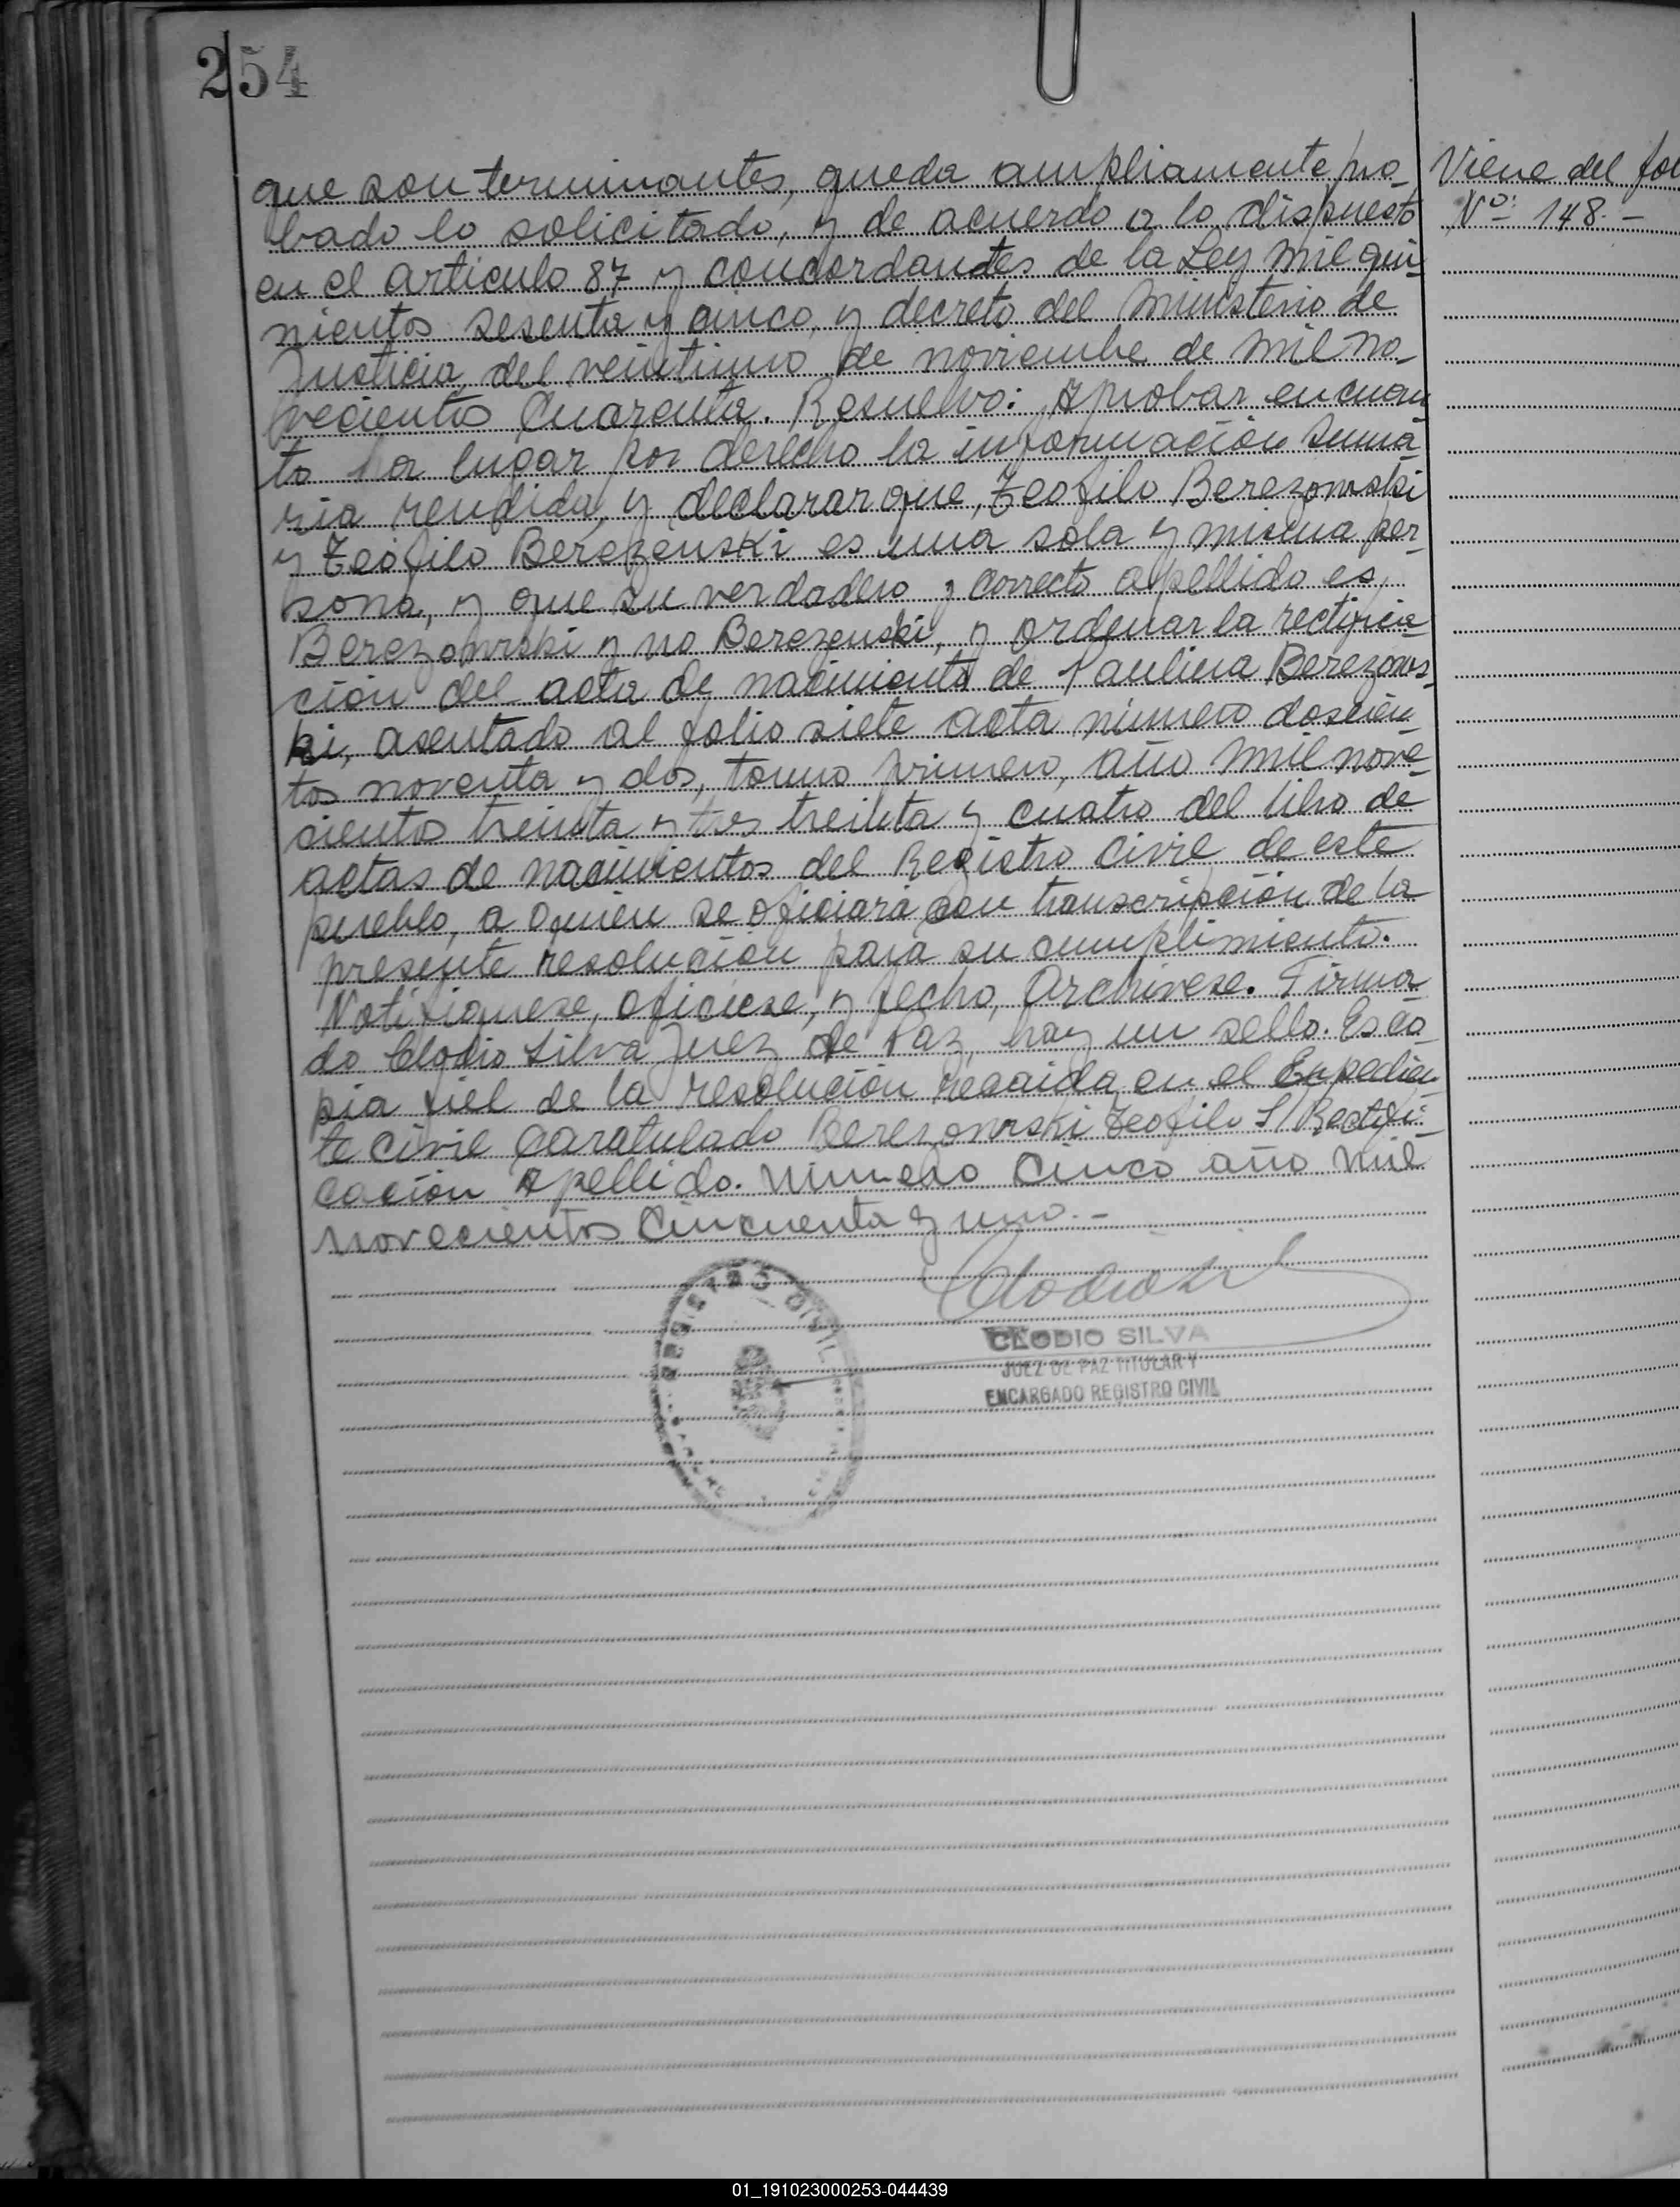 254
que son terminantes, queda ampliamente pro-
bado lo solicitado, y de acuerdo a lo dispuesto
en el articulo 87 y concordantes de la Ley mil qui-
nientos sesenta y cinco, y decreto del Ministerio de
Justicia, del veintiuno de noviembre de mil no-
vecientos Cuarenta. Resuelvo: Aprobar en cuan
to ha lugar por derecho la información suma-
ria rendida, y declarar que, Teofilo Berezowski
y Teófilo Berezenski es una sola y misma per-
sona, y que su verdadero y correcto apellido es,
Berezowski y no Berezenski, y ordenar la rectifica-
ción del acta de nacimiento de Paulina Berezows-
ki, asentado al folio siete acta número doscien-
tos noventa y dos, tomo primero, año mil nove-
cientos treinta y tres treinta y cuatro del libro de
actas de nacimientos del Registro Civil de este
pueblo, a quien se oficiará con transcripción de la
presente resolución para su cumplimiento.
Notifiquese, oficiese, y fecho, Archivese. Firma-
do Clodio Silva Juez de Paz, hay un sello. Es co-
pia fiel de la resolución recaida en el Expedien-
te civil caratulado Berezowski Teofilo S/ Rectifi-
cación Apellido. Número Cinco año mil
novecientos Cincuenta y uno.-
Viene del fol
Nº: 148.-
REGISTRO CIVIL
CLODIO SILVA
JUEZ DE PAZ TITULAR Y
ENCARGADO REGISTRO CIVIL
01_191023000253-044439